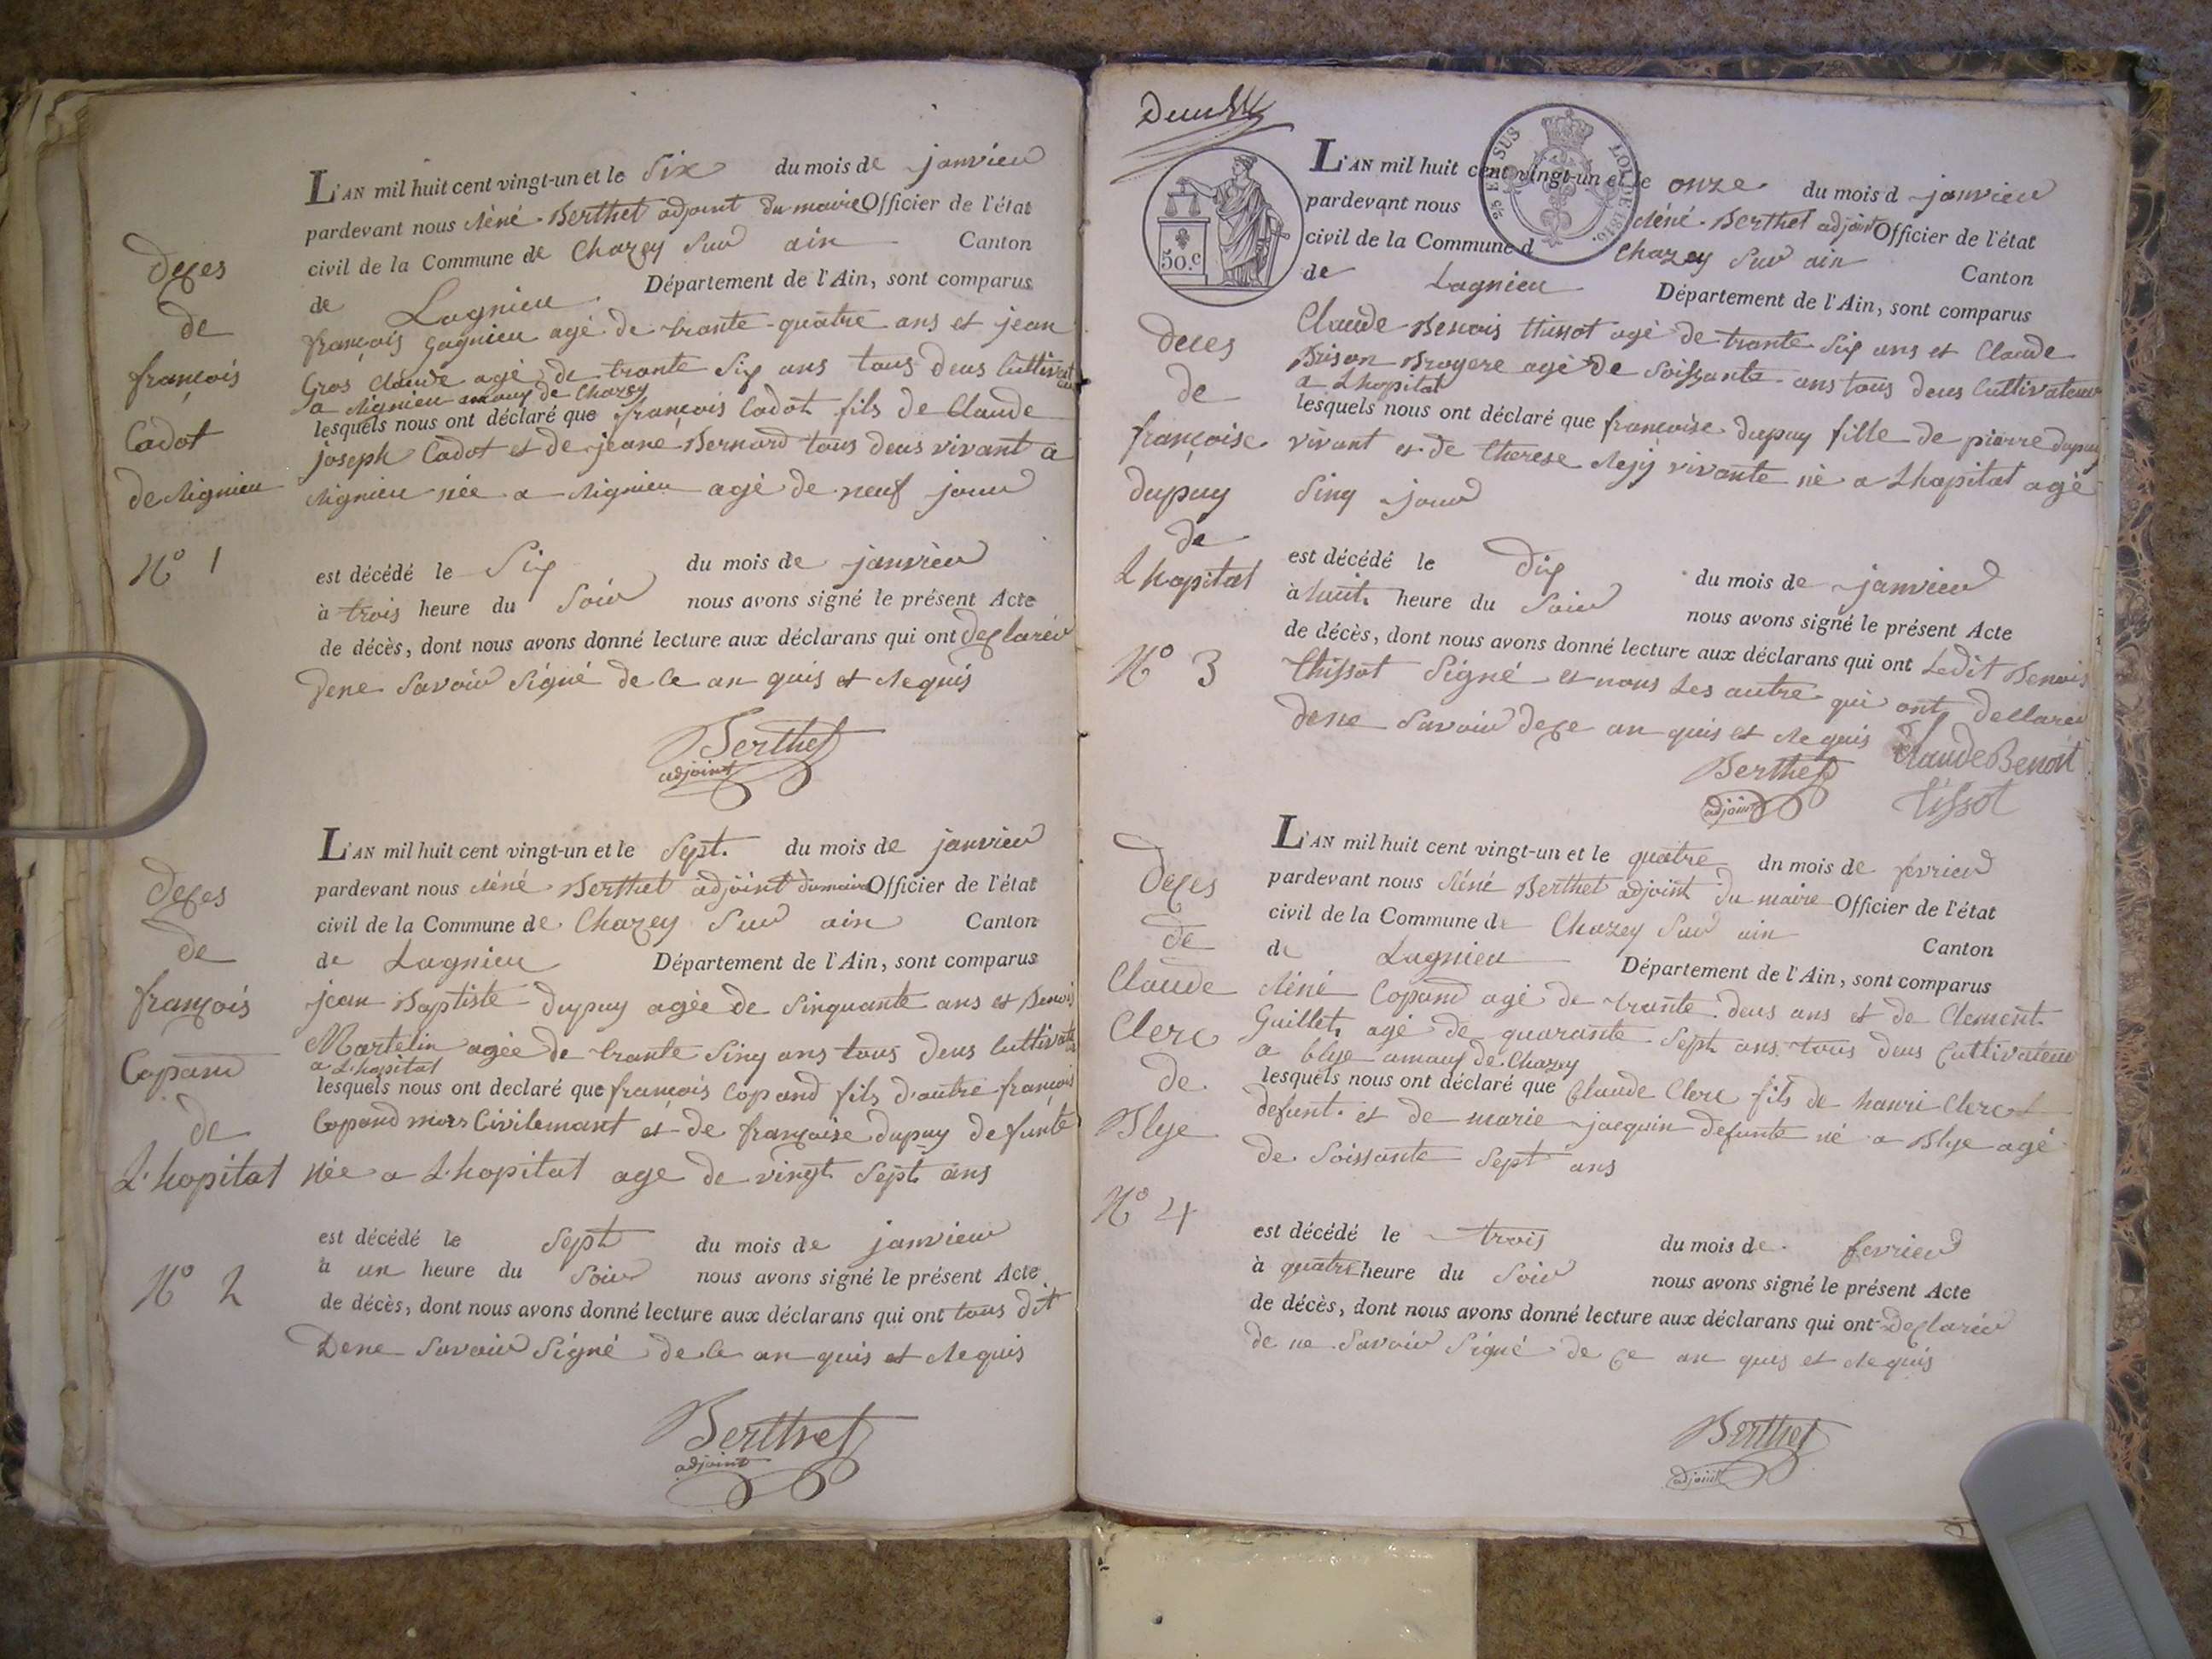 L'AN mil huit cent vingt-un et le Six du mois de janvier
pardevant nous Réné Berthet adjoint du maire Officier de l'état
civil de la Commune de Chazey Sur ain Canton
de Lagnieu Département de l'Ain, sont comparus
françois Gagnieu agé de trante-quatre ans et jean
Gros Claude agé de trante Six ans tous deus Cultivat
a Rignieu de Chazey
lesquels nous ont déclaré que françois Cadot fils de Claude
joseph Cadot et de jeane Bernard tous deus vivant a
Rignieu née a Rignieu agé de neuf jour
est décédé le Six du mois de janvier
à trois heure du Soir nous avons signé le présent Acte
de décès, dont nous avons donné lecture aux déclarans qui ont declarér
dene Savoir Signé de Ce an quis et Requis
Berthet
adjoint
Deces
de
françois
Cadot
de Rignieu
N° 1
L'AN mil huit cent vingt-un et le Sept du mois de janvier
pardevant nous Réné Berthet adjoint dumaire Officier de l'état
civil de la Commune de Chazey Sur ain Canton
de Lagnieu Département de l'Ain, sont comparus
jean Baptiste dupuy agée de Sinquante ans et Benois
Martelin agée de trante Sinq ans tous deus Cultivat
a L'hopital
lesquels nous ont declaré que françois Copand fils d'autre françois
Copand mors Civilemant et de françoise dupuy defunte
née a L'hopital age de vingt Sept ans
est décédé le Sept du mois de janvier
à un heure du Soir nous avons signé le présent Acte
de décès, dont nous avons donné lecture aux déclarans qui ont tous dit
Dene Savoir Signé de Ce an quis et Requis
Berthet
adjoint
Deces
de
françois
Copand
de
L'hopital
N° 2
50.c
L'AN mil huit cent vingt-un et le onze du mois d janvier
pardevant nous Réné Berthet adjoint Officier de l'état
civil de la Commune d Chazey Sur ain Canton
de Lagnieu Département de l'Ain, sont comparus
LOI DE 1816.
Claude Benois thissot agé de trante Six ans et Claude
Brison Brogere agé de Soissante ans tous deus Cultivateur
a Lhopital
lesquels nous ont déclaré que françoise dupuy fille de pierre dupuy
vivant et de therese vivante né a Lhopital agé
Sinq jour
est décédé le Dix du mois de janvier
à huit heure du Soir nous avons signé le présent Acte
de décès, dont nous avons donné lecture aux déclarans qui ont Ledit Benois
thissot Signé et nous Les autre qui ont declarer
dene Savoir de Ce an quis et Requis
Claude Benoit
tissot
Berthet
adjoint
deces
de
françoise
dupuy
de
Lhopital
N° 3
L'AN mil huit cent vingt-un et le quatre dn mois de fevrier
pardevant nous Réné Berthet adjoint du maire Officier de l'état
civil de la Commune de Chazey Sur ain Canton
de Lagnieu Département de l'Ain, sont comparus
Réné Copand agé de trante deus ans et de Clement
Guillet agé de quarante Sept ans tous deus Cultivateur
a blye de Chazey
lesquels nous ont déclaré que Claude Clerc fils de hanri Clerc
defunt et de marie jacquin defunte né a Blye agé
de Soissante Sept ans
est décédé le trois du mois de fevrier
à quatre heure du Soir nous avons signé le présent Acte
de décès, dont nous avons donné lecture aux déclarans qui ont declarér
de ne Savoir Signé de Ce an quis et Requis
Berthet
adjoint
Deces
de
Claude
Clerc
de
Blye
N° 4